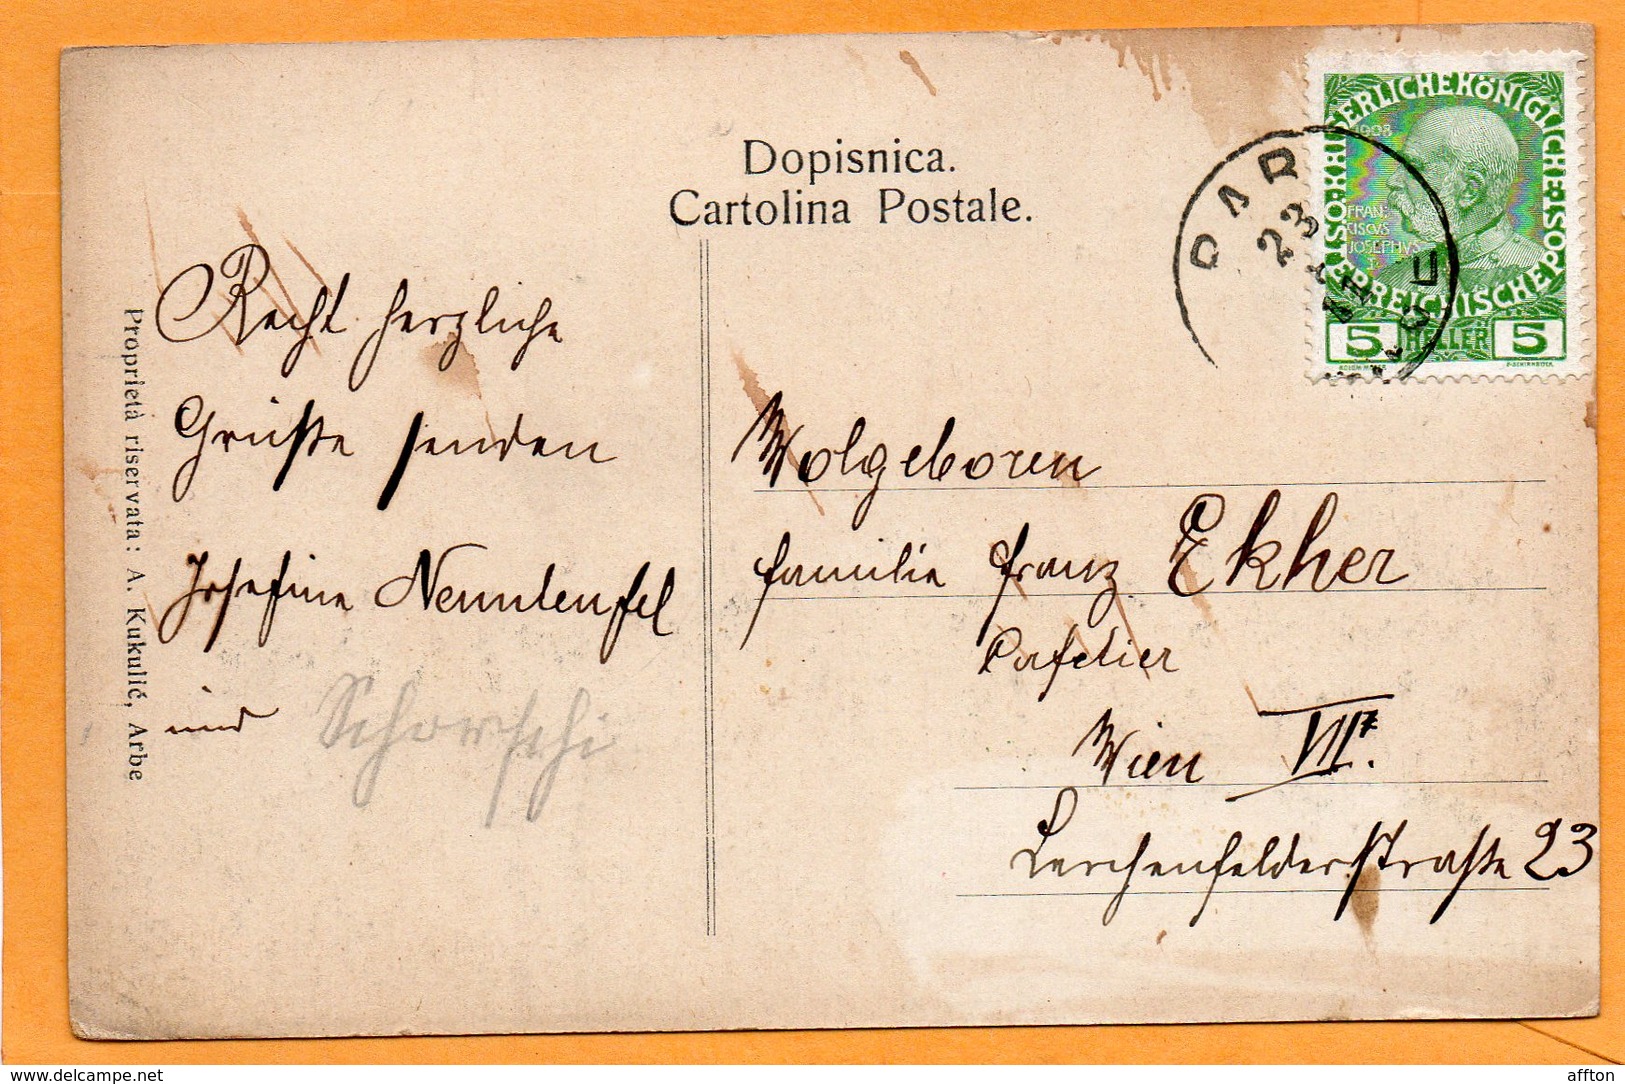 Dopisnica.
Cartolina Postale.
Recht herzliche
Grüße senden
Josefine Nenntenfel
und Schorschi
Proprietà riservata: A. Kukulić, Arbe
Wolgeboren
Familie Franz Ekher
Cafetier
Wien VII.
Lerchenfelderstraße 23
KAISERLICHEKÖNIGLICHE ÖSTERREICHISCHE POST
1908
FRAN:
CISCUS
JOSEPHUS
I.
5 HELLER 5
23
delcampe.net
affton